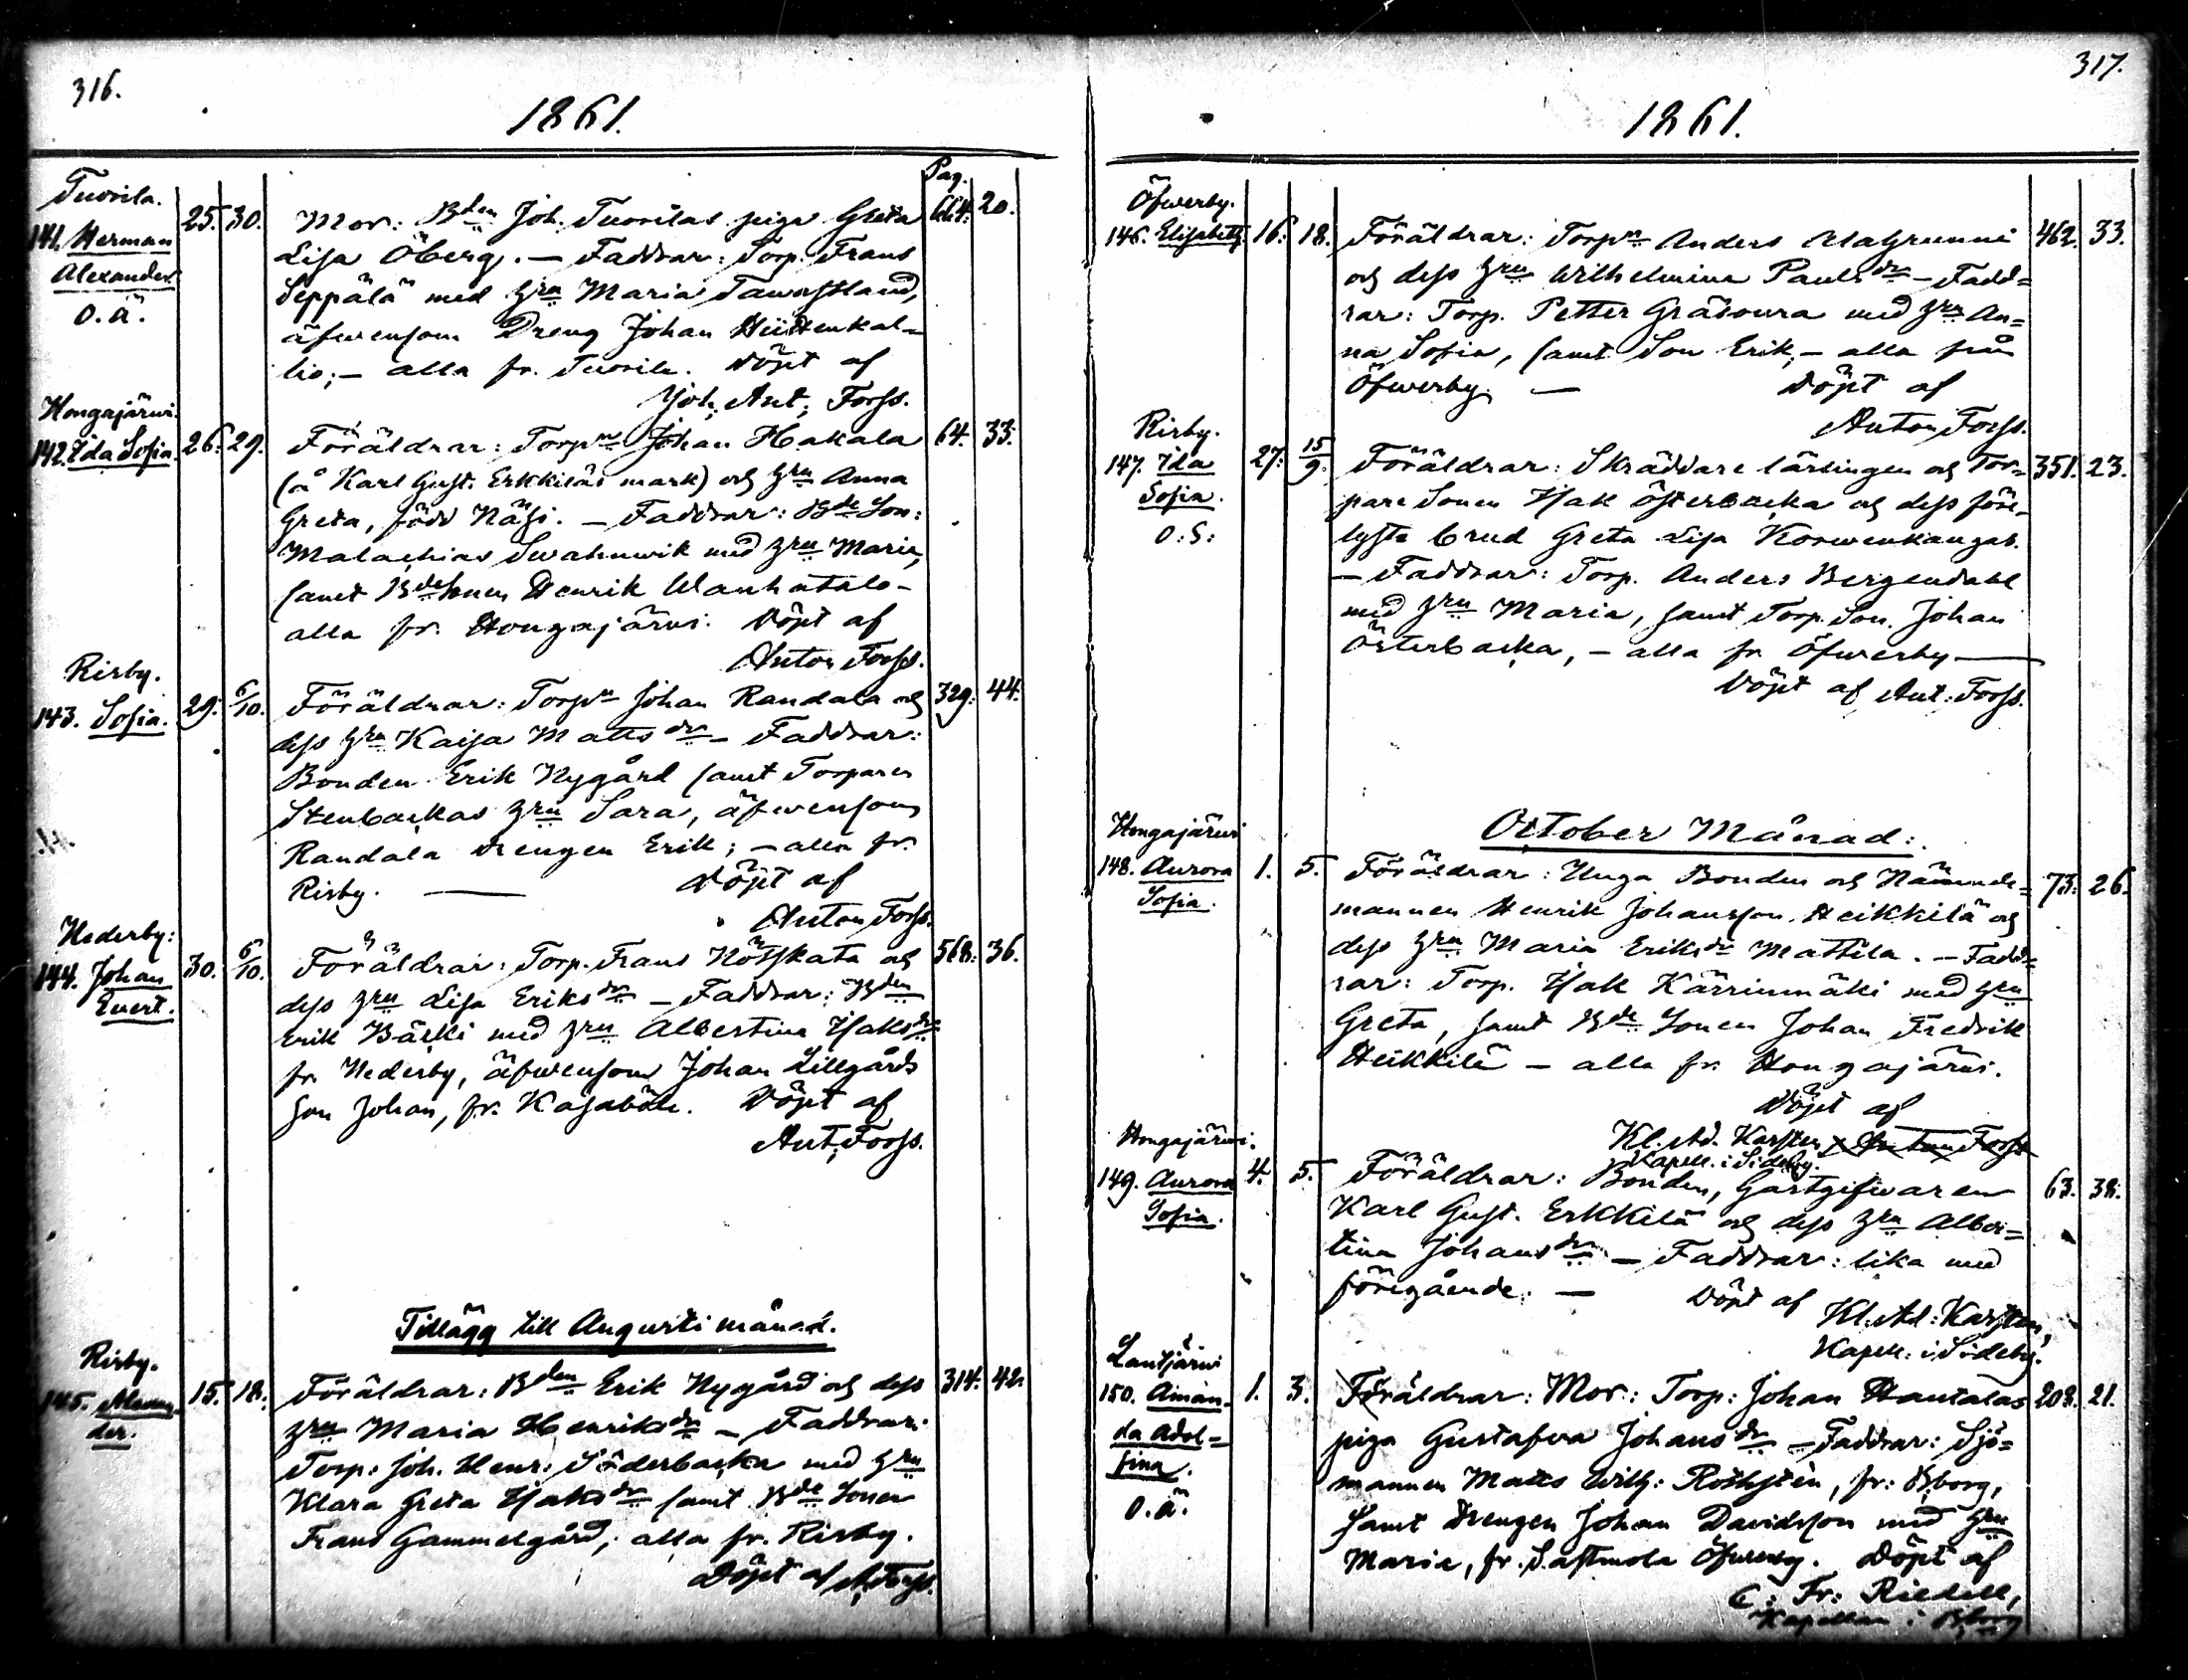 316.
1861.
Pag.
Tuorila.
141. Herman
Alexander.
O. ä.
25. 30.
Mor: Bden Joh. Tuorilas piga Greta
Lisa Öberg. — Faddrar: Torp. Frans
Seppälä med hru Maria Tawastland,
äfwensom Dreng Johan Hiittenkal-
lio; — alla fr. Tuorila. Döpt af
Joh. Ant. Forss.
664. 20.
Hongajärwi.
142. Ida Sofia.
26. 29.
Föräldrar: Torpn Johan Hakala
(å Karl Gust. Erkkiläs mark) och hru Anna
Greta, född Näsi. — Faddrar: Bde Son:
Malachias Swahnwik med hru Maria,
samt Bde Sonen Henrik Wanhatalo -
alla fr. Hongajärwi. Döpt af
Anton Forss.
64. 33.
Risby.
143. Sofia.
29. 6/10.
Föräldrar: Torpn Johan Randala och
dess hru Kaisa Mattsdr — Faddrar:
Bonden Erik Nygård samt Torparen
Stenbackas hru Sara, äfwensom
Randala drengen Erik; — alla fr.
Risby. — Döpt af
Anton Forss.
329. 44.
Nederby:
144. Johan
Evert.
30. 6/10.
Föräldrar: Torp. Frans Nötskata och
dess hru Lisa Eriksdr — Faddrar: Bden
Erik Bäcki med hru Albertina Isaksdr
fr. Nederby, äfwensom Johan Lillgårds
son Johan, fr. Kasaböle. Döpt af
Ant. Forss.
568. 36.
Tillägg till Augusti månad.
Risby.
145. Alexan-
der.
15. 18.
Föräldrar: Bden Erik Nygård och dess
hru Maria Henriksdr — Faddrar:
Torp: Joh. Henr: Söderbacka med hru
Klara Greta Isaksdr samt Bde Sonen
Frans Gammelgård; alla fr. Risby.
Döpt af A. Forss.
314. 42.
317.
1861.
Öfwerby.
146. Elisabeth.
16. 18.
Föräldrar: Torpn Anders Alagrunni
och dess hru Wilhelmina Paulsdr — Fadd=
rar: Torp. Petter Gräsoura med hru An=
na Sofia, samt Son Erik, — alla från
Öfwerby. — Döpt af
Anton Forss.
462. 33.
Risby.
147. Ida
Sofia.
O: S:
27. 15/9.
Föräldrar: Skräddare lärlingen och Tor=
pare Sonen Isak Österbacka och dess före-
lysta brud Greta Lisa Korwenkangas.
— Faddrar: Torp. Anders Bergendahl
med hru Maria, samt Torp. Son. Johan
Österbacka, — alla fr Öfwerby —
Döpt af Ant: Forss.
351. 23.
October Månad:
Hongajärwi
148. Aurora
Sofia.
1. 5.
Föräldrar: Unga Bonden och Nämnde=
mannen Henrik Johansson Heikkilä och
dess hru Maria Eriksdr Mattila. — Fadd=
rar: Torp. Isak Kärrinmäki med hru
Greta, samt Bde Sonen Johan Fredrik
Heikkilä — alla fr. Hongajärwi.
Döpt af
Kl. Ad. Karsten, Anton Forss
Kapell. i Sideby.
73. 26.
Hongajärwi.
149. Aurora
Sofia.
4. 5.
Föräldrar: Bonden, Gästgifwaren
Karl Gust. Erkkilä och dess hru Alber=
tina Johansdr. — Faddrar: lika med
föregående. — Döpt af Kl. Ad: Karsten,
Kapell: i Sideby.
63. 38.
Lantjärwi
150. Aman-
da Adol=
fina.
O. ä.
1. 3.
Föräldrar: Mor: Torp: Johan Hantalas
piga Gustafwa Johansdr — Faddrar: Sjö=
mannen Matts Wilh: Rothstén, fr: Bjborg,
samt drengen Johan Davidsson med hru
Maria, fr. Sastmola Öfwerby. Döpt af
C: Fr: Riedell,
Kapellan i Bjborg
208. 21.